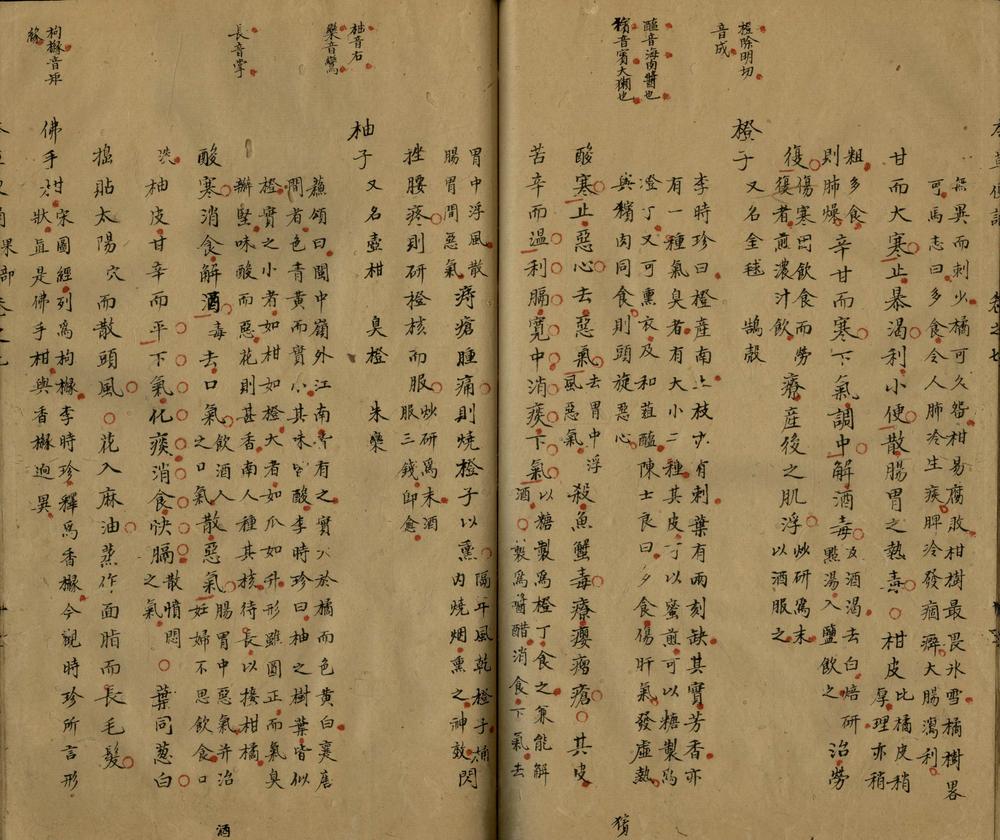 橙除明切
音成
醢音海肉醬也
獱音賓大獺也
無異而刺少橘可久
甘易腐敗柑樹最畏氷雪橘樹畧
可馬志曰多食令人肺冷生痰脾冷發痼癖大腸瀉利
甘而大寒止暴渴利小便散腸胃之熱毒柑皮比橘皮稍
厚理亦稍
粗多食
則肺燥
辛甘而寒下氣調中解酒毒及酒渴去白焙研
點湯入鹽飲之
治勞
復傷寒因飲食而勞
復者煎濃汁飲
療産後之肌浮炒研爲末
以酒服之
橙子又名金毬 鵠殼
李時珍曰橙產南土枝
有刺葉有兩刻缺其實芳香亦
有一種氣臭者有大小二種其皮可以蜜煎可以糖製
可以熏衣及和葅醢陳士良曰多食傷肝氣發虛熱
與獱肉同食則頭旋惡心
酸寒止惡心去惡氣去胃中浮
風惡氣
殺魚蟹毒療癭瘤瘡其皮
苦辛而温利膈寬中消痰下氣以糖製爲橙丁食之兼能解
酒
製爲醬醋消食下氣去
胃中浮風散
腸胃間惡氣
痔瘡腫痛則燒橙子以熏隔年風乾橙子桶
内燒烟熏之神效
閃
挫腰疼則研橙核而服炒研爲末酒
服三錢卽愈
柚音右
欒音鸞
長音掌
柚子又名壺柑 臭橙 朱欒
蘇頌曰閩中嶺外江南皆有之實大於橘而色黃白襄唐
間者色青黃而實小其味皆酸李時珍曰柚之樹葉皆似
橙實之小者如柑如橙大者如瓜如升形雖圓正而氣臭
瓣堅味酸而惡花則甚香南人種其核待長以接柑橘
酸寒消食解酒毒去口氣飲酒人
之口氣
散惡氣腸胃中惡氣并治
妊婦不思飲食口
淡
柚皮甘辛而平下氣化痰消食快膈散憤悶
之氣
葉同葱白
搗貼太陽穴而散頭風花入麻油蒸作面脂而長毛髮
枸櫞音矩
佛手柑宋圖經列爲枸櫞李時珍釋爲香櫞今觀時珍所言形
狀眞是佛手柑與香櫞迥異
獱
酒